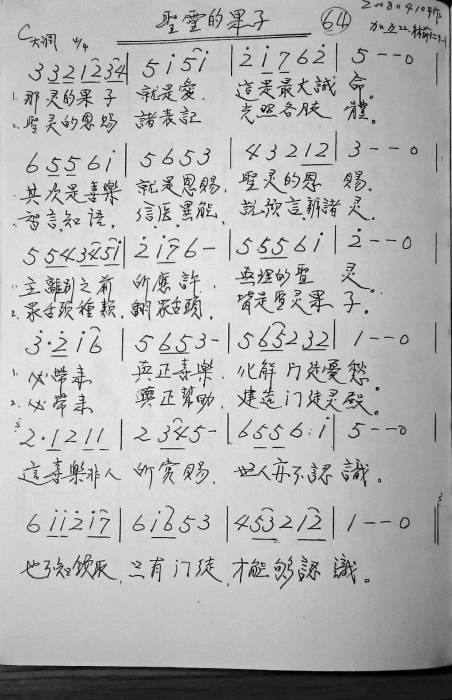 聖靈的果子 64 20080410
C大调 4/4
3 3 2 1 2 3 4 | 5 i 5 i | 2 i 7 6 2 | 5 - - 0
1. 那灵的果子 就是愛. 這是最大誡 命。
2. 聖灵的恩賜 諸表記 光照各肢 體。
6 5 5 6 i | 5 6 5 3 | 4 3 2 1 2 | 3 - - 0
其次是喜樂 就是恩賜. 聖灵的恩 賜.
智言知语, 信医異能, 説預言辨諸灵.
5 5 4 3 4 5 i | 2 i 7 6 - | 5 5 5 6 i | 2 - - 0
1. 主離别之前 所應許. 真理的聖 灵.
2. 眾舌頭種類, 翻眾舌頭. 皆是聖灵果 子.
3 · 2 i 6 | 5 6 5 3 - | 5 6 5 2 3 2 | 1 - - 0
1. 必帶来 真正喜樂. 化解门徒憂愁.
2. 必帶来 真正幫助, 建造门徒灵殿.
2 · 1 2 1 1 | 2 3 4 5 - | 6 5 5 6 · i | 5 - - 0
這喜樂非人 所賞賜. 世人亦不認 識。
6 i i 2 i 7 | 6 i 6 5 3 | 4 5 3 2 1 2 | 1 - - 0
也難領取, 只有门徒, 才能夠認 識。